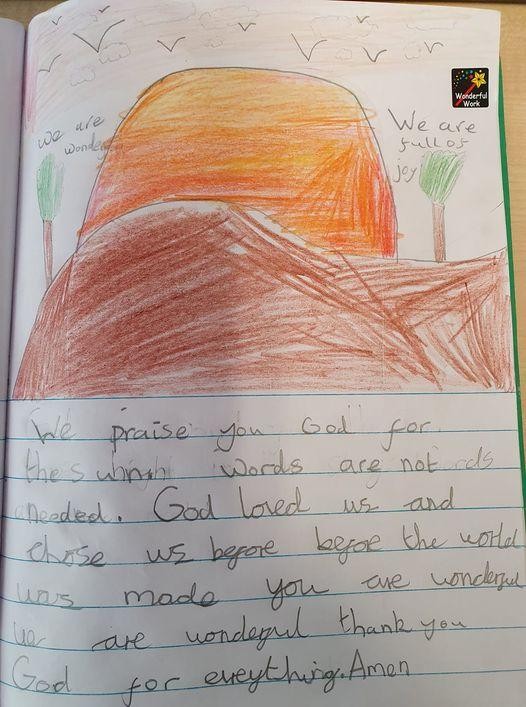 We are
wonder
We are
full of
joy
Wonderful
Work
We praise you God for
the words are not
needed. God loved us and
chose us before before the world
was made you are wonderful
we are wonderful thank you
God for eveything. Amen